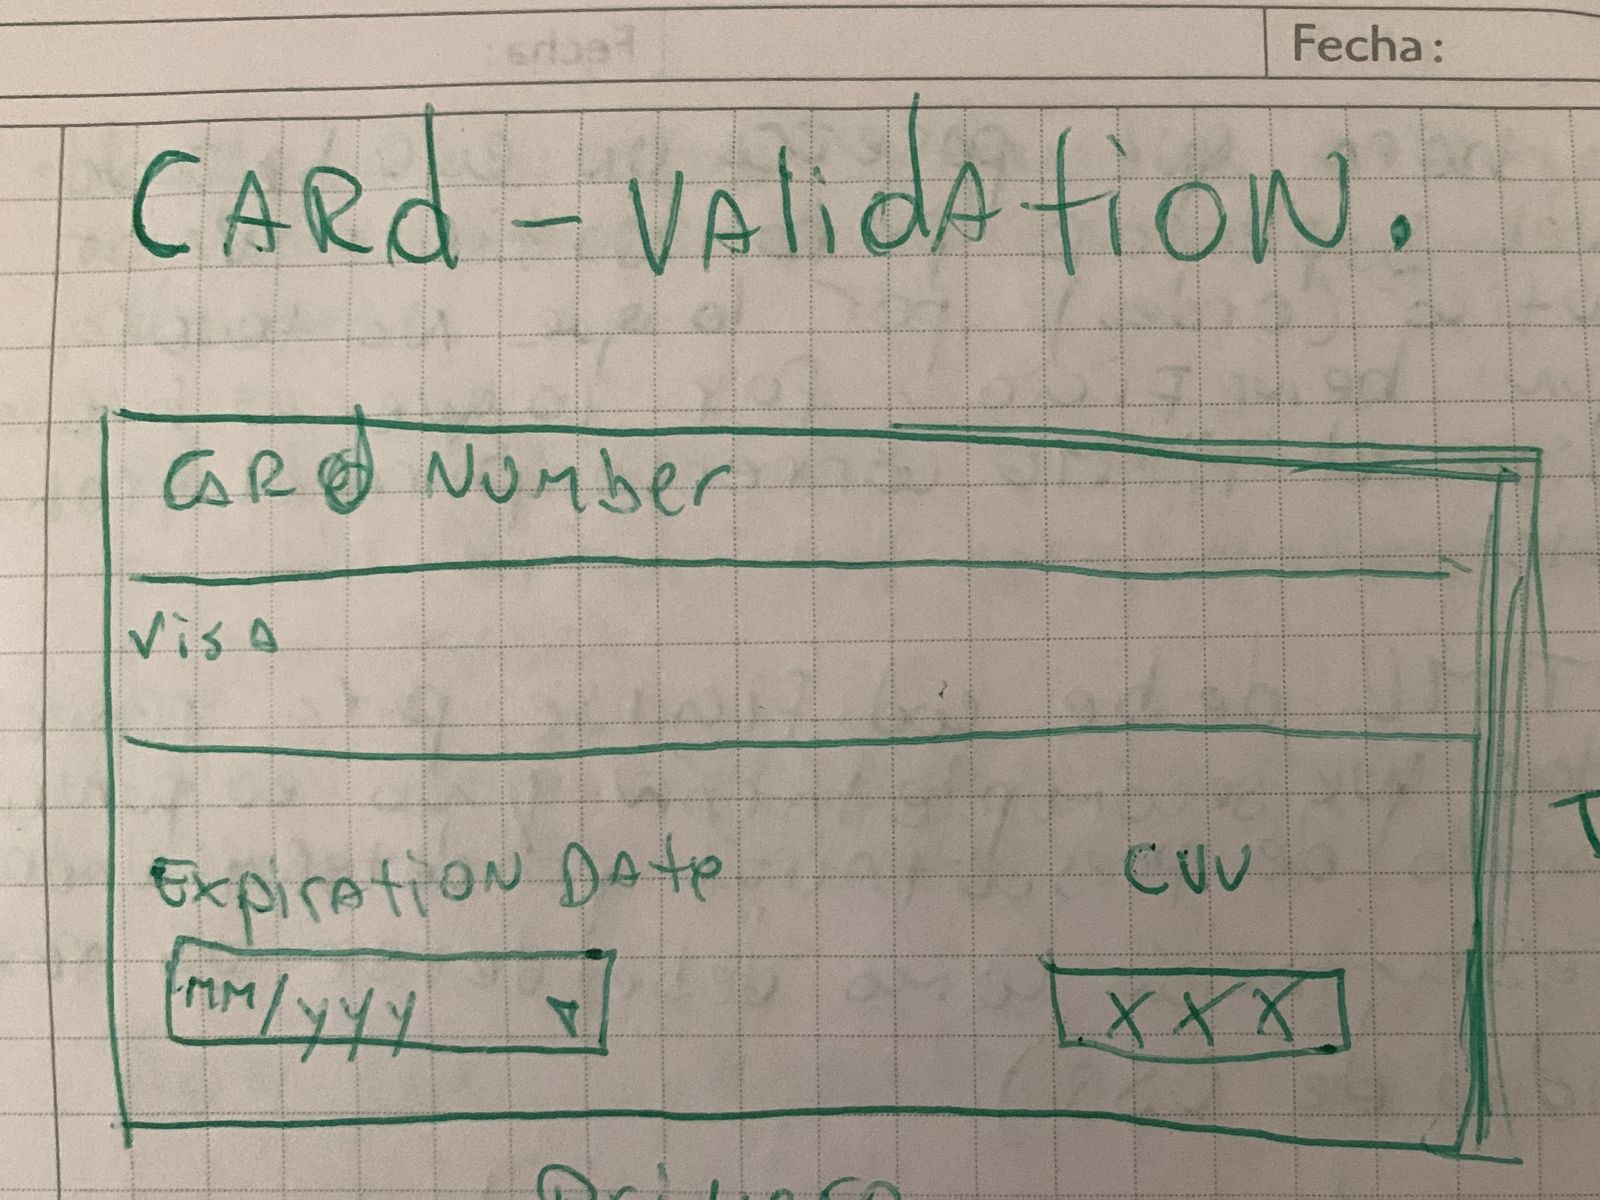 Fecha:
CARd - VAlidAtioN.
CARd Number
VisA
ExpirAtioN DAte
CVV
MM/yyy
XXX